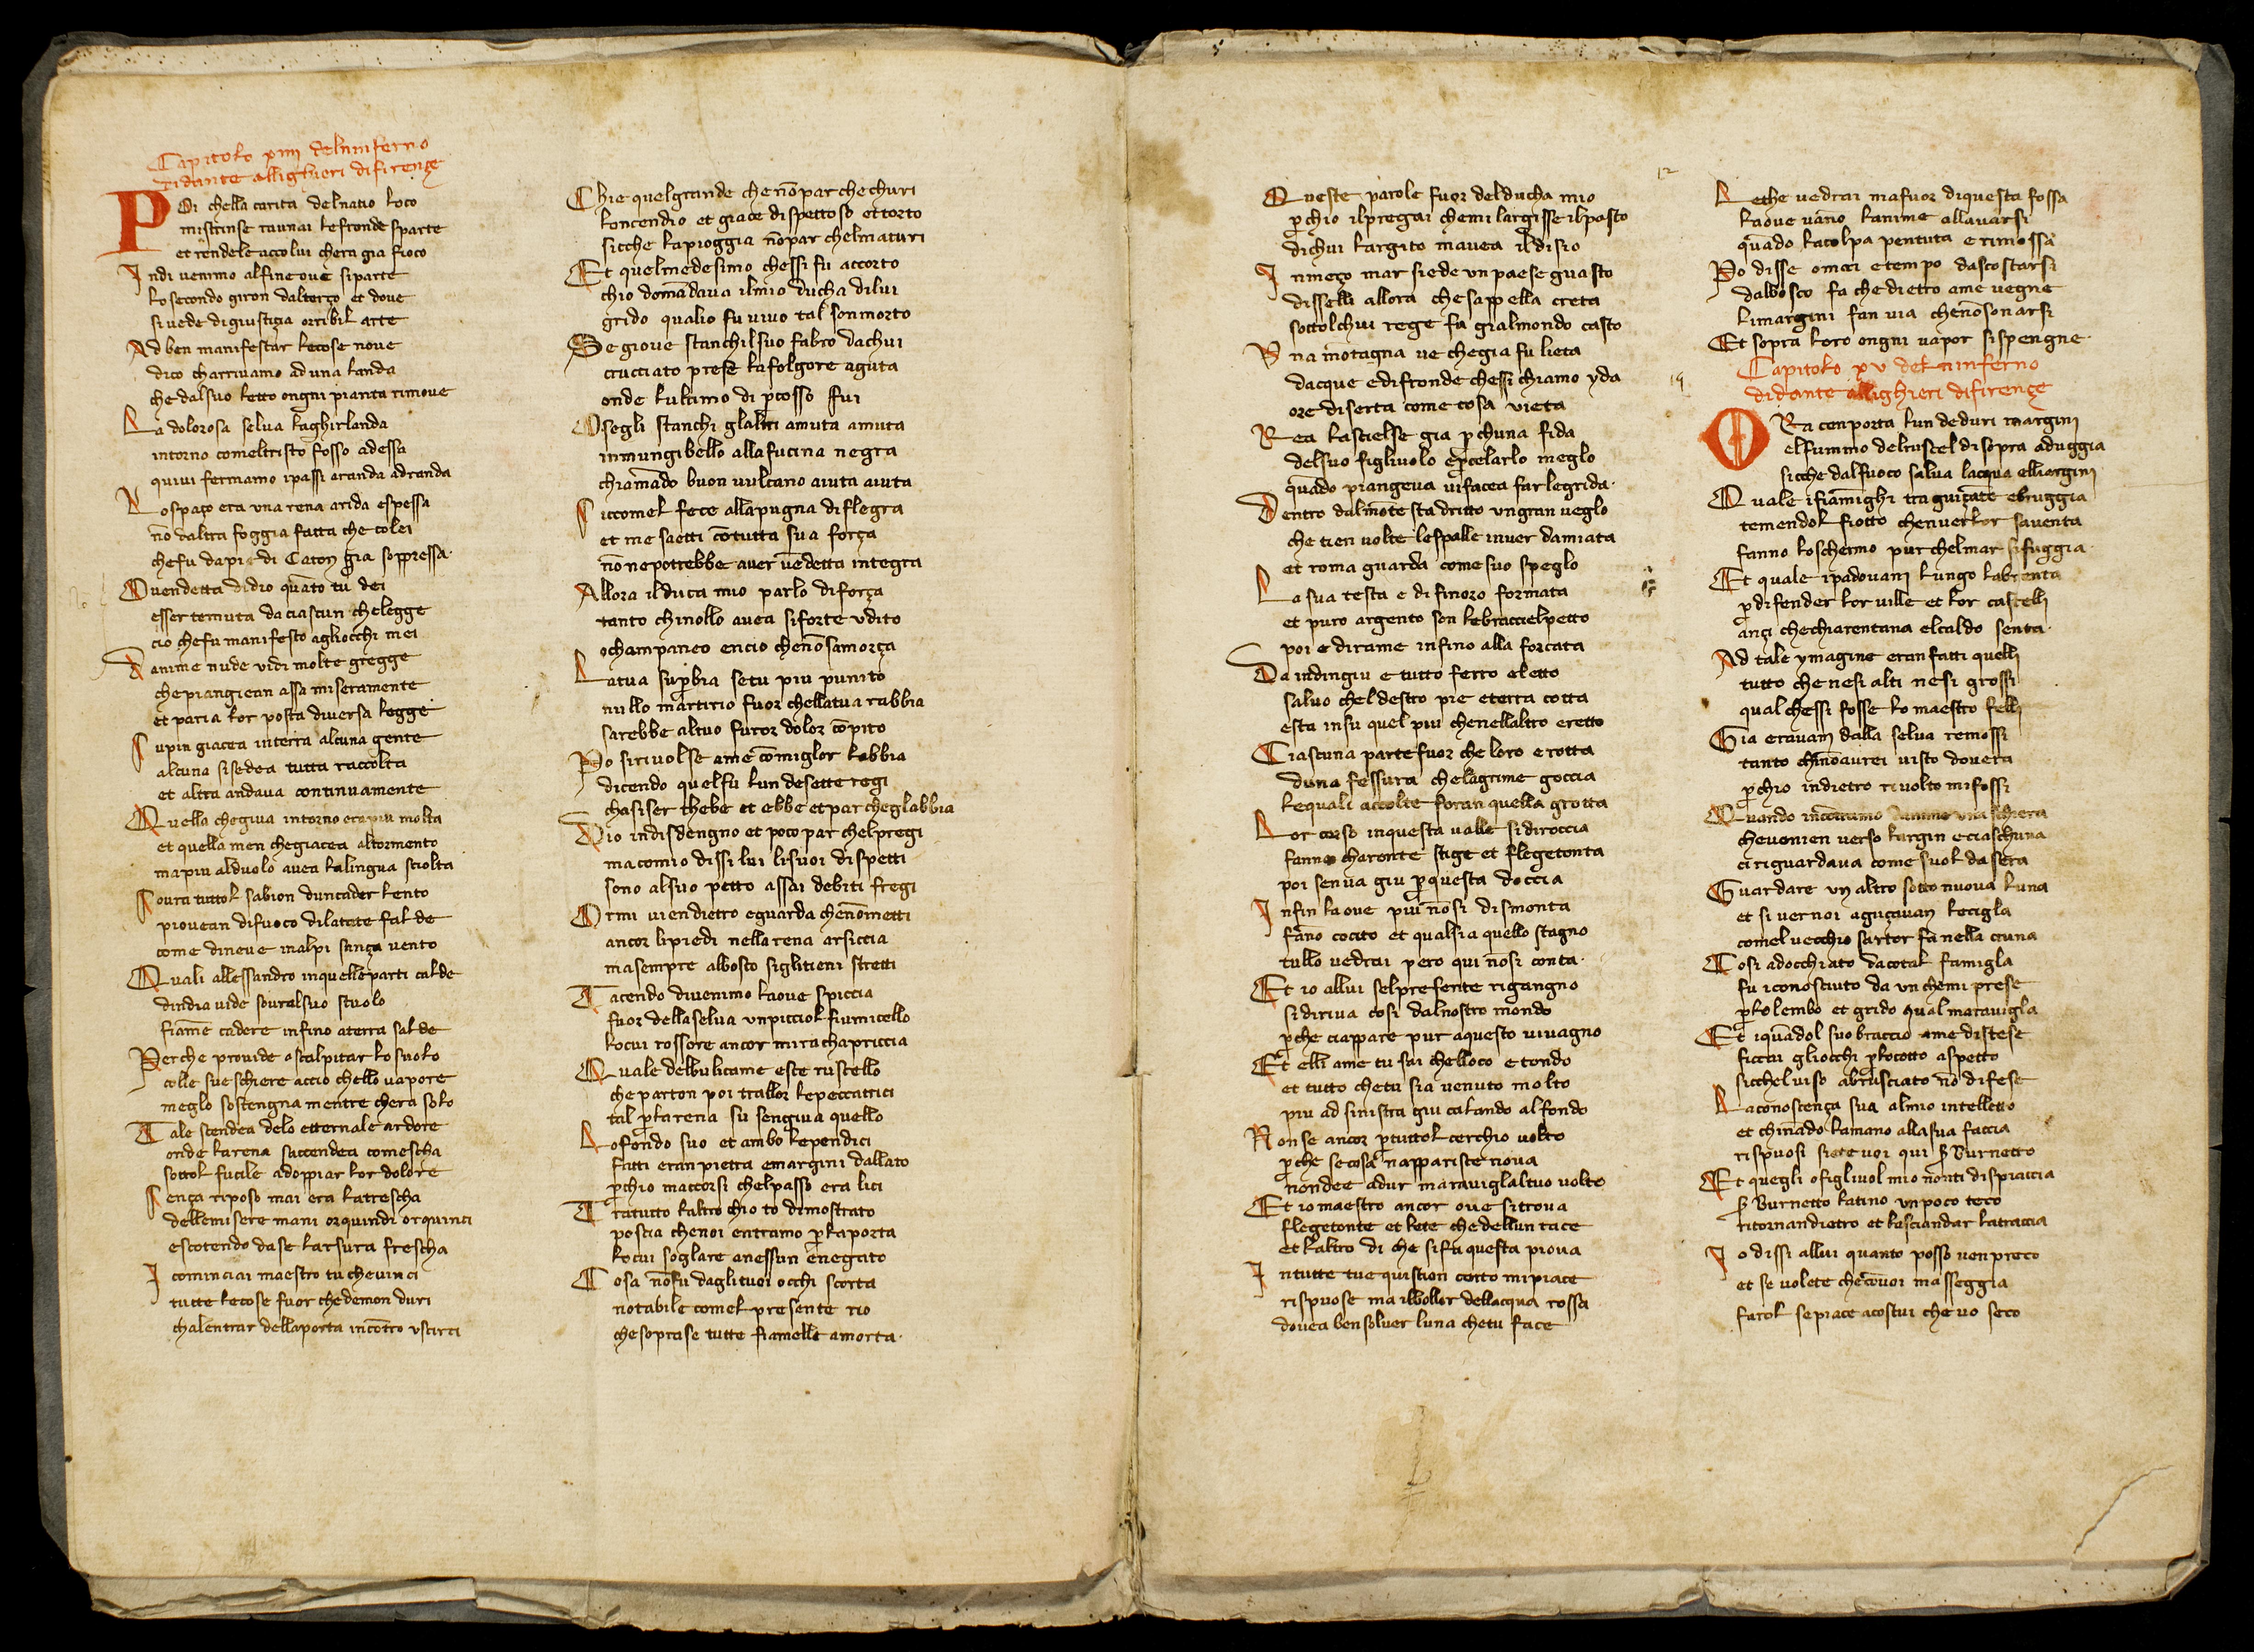 Capitolo xiiii delninferno
didante allighieri difirençe
POi chella carita delnatio loco
mistrinse raunai lefronde sparte
et rendele accolui chera gia fioco
Indi venimo alfine ove siparte
lo secondo giron dalterço et dove
sivede digiustiçia orribil arte
Ad ben manifestar lecose nove
dico charrivamo ad una landa
che dalsuo letto ongni pianta rimove
La dolorosa selva laghirlanda
intorno comeltristo fosso adessa
quivi fermamo ipassi aranda adranda
Lospaço era una rena arida espessa
nō daltra foggia fatta che colei
chefu dapie di Caton gia soppressa
Ovendetta didio quāto tu dei
esser temuta daciascun chelegge
cio chefu manifesto agliocchi mei
Danime nude vidi molte gregge
chepiangiean assa miseramente
et paria lor posta diversa legge
Supin giacea interra alcuna gente
alcuna sisedea tutta raccolta
et altra andava continuamente
Quella chegiva intorno erapiu molta
et quella men chegiacea altormento
mapiu alduolo avea lalingua sciolta
Sovra tuttol sabion duncader lento
piovean difuoco dilatate falde
come dineve inalpi sança vento
Quali allessandro inquelleparti calde
dindia vide sovralsuo stuolo
fiāme cadere infino aterra salde
Perche provide ascalpitar lo suolo
colle sueschiere accio chello vapore
meglo sostengna mentre chera solo
Tale scendea delo etternale ardore
onde larena saccendea comescha
sottol fucile adoppiar lor dolore
Sença riposo mai era latrescha
dellemisere mani orquindi orquinci
escotendo dase larsura frescha
I cominciai maestro tu chevinci
tutte lecose fuor chedemon duri
chalentrar dellaporta incōtro uscirci
Chie quelgrande chenōpar chechuri
loncendio et giace dispettoso ettorto
sicche lapioggia nōpar chelmaturi
Et quelmedesimo chessi fu accorto
chio domādava ilmio ducha dilui
grido qualio fu vivo tal sonmorto
Se giove stanchilsuo fabro dachui
crucciato prese lafolgore aguta
onde lultimo di pcosso fui
Osegli stanchi glaltri amuta amuta
inmungibello allafucina negra
chiamādo buon vulcano aiuta aiuta
Siccomel fece allapugna diflegra
et me saetti cōtutta sua força
nōnepotrebbe aver vēdetta integra
Allora ilduca mio parlo diforça
tanto chinollo avea siforte udito
ochampaneo encio chenōsamorça
Latua supbia setu piu punito
nullo martirio fuor chellatua rabbia
sarebbe altuo furor dolor cōpito
Po sirivolse ame cōmiglor labbia
dicendo quelfu lun desette regi
chasiser thebe et ebbe etpar cheglabbia
Dio indisdengno et poco par chelpregi
macomio dissi lui lisuoi dispetti
sono alsuo petto assai debiti fregi
Ormi viendietro eguarda chenōmetti
ancor lipiedi nellarena arsiccia
masempre albosco siglitieni stretti
Tacendo divenimo laove spiccia
fuor dellaselva unpicciol fiumicello
locui rossore ancor mirachapriccia
Quale delbulicame esce ruscello
che parton poi trallor lepeccatrici
tal p larena su sengiva quello
Lofondo suo et ambo lependici
fatti eranpietra emargini dallato
pchio maccorsi chelpasso era lici
Tratutto laltro chio to dimostrato
poscia chenoi entramo p laporta
locui soglare anessun enegato
Cosa nōfu daglituoi occhi scorta
notabile comel presente rio
chesoprase tutte fiamelle amorta
Queste parole fuor delducha mio
pchio ilpregai chemi largisse ilpasto
dichui largito mavea ildisio
Inmeço mar siede un paese guasto
disselli allora chesappella creta
sottolchui rege fu gialmondo casto
Una mōtagna ve chegia fu lieta
dacque edifronde chessi chiamo yda
ore diserta come cosa vieta
Rea lascielse gia pchuna fida
delsuo figlivolo epcelarlo meglo
quādo piangeva vifacea farlegrida
Dentro dalmōte sta dritto ungran veglo
che tien volte lespalle inver damiata
et roma guarda comesuo speglo
La sua testa e difinoro formata
et puro argento son lebraccielpetto
poi e dirame infino alla forcata
Da indingiu e tutto ferro eletto
salvo chel destro pie eterra cotta
esta insu quel piu chenellaltro eretto
Ciascuna parte fuor che loro e rotta
duna fessura chelagrime goccia
lequali accolte foran quella grotta
Lor corso inquesta valle sidiroccia
fanno charonte stige et flegetonta
poi senva giu pquesta doccia
Infin laove piu nōsi dismonta
fāno cocito et qualsia quello stagno
tullo vedrai pero qui nōsi conta
Et io allui selpresente rigangno
sidiriva cosi dalnostro mondo
pche ciappare pur aquesto vivagno
Et elli ame tu sai chelloco etondo
et tutto chetu sia venuto molto
piu ad sinistra giu calando alfondo
Non se ancor ptuttol cerchio volto
pche secosa nappariscenova
nondee adur maraviglaltuo volto
Et io maestro ancor ove sitrova
flegetonte et lete che dellun tace
et laltro di che sifa questa piova
Intutte tue quistion certo mipiace
rispuose ma ilbollor dellacqua rossa
dovea bensolver luna chetu face
12
Lethe vedrai mafuor diquesta fossa
laove vāno lanime allavarsi
quādo lacolpa pentuta e rimossa
Po disse omai etempo dascostarsi
dalbosco fa che dietro ame vegne
limargini fan via chenōsonarsi
Et sopra loro ongni vapor sispengne
Capitolo xv delninferno
didante allighieri difirençe
ORa cenporta lun deduri margini
elfummo delruscel disopra aduggia
sicche dalfuoco salva lacqua elliargini
Quale ifiāmighi tra guiçāte ebruggia
temendol fiotto chenverlor saventa
fanno loschermo pur chelmar sifuggia
Et quale ipadovani lungo labrenta
pdifender lor ville et lor castelli
ançi chechiarentana elcaldo senta
Ad tale ymagine eranfatti quelli
tutto chenesi alti nesi grossi
qual chessi fosse lo maestro felli
Gia eravam dalla selva remossi
tanto chinōavrei visto dovera
pchio indietro rivolto mifossi
Quando incōtramo danime una schiera
chevenien verso largin eciaschuna
ciriguardava come suol dasera
Guardare un altro sotto nuova luna
et si ver noi aguçavan lecigla
comel vecchio sartor fa nella cruna
Cosi adocchiato dacotal famigla
fu iconosciuto da un chemi prese
plolembo et grido qual maravigla
Et iquādol suobraccio ame distese
ficcai gliocchi plocotto aspetto
sicchelviso abrusciato nō difese
Laconoscença sua almio intelletto
et chināndo lamano allasua faccia
rispuosi siete voi qui Burnetto
Et quegli ofiglivol mio nōnti dispiaccia
Burnetto latino unpoco teco
ritornandietro et lasciandar latraccia
Io dissi allui quanto posso venpreco
et se volete checōvoi masseggia
farol sepiace acostui che vo seco